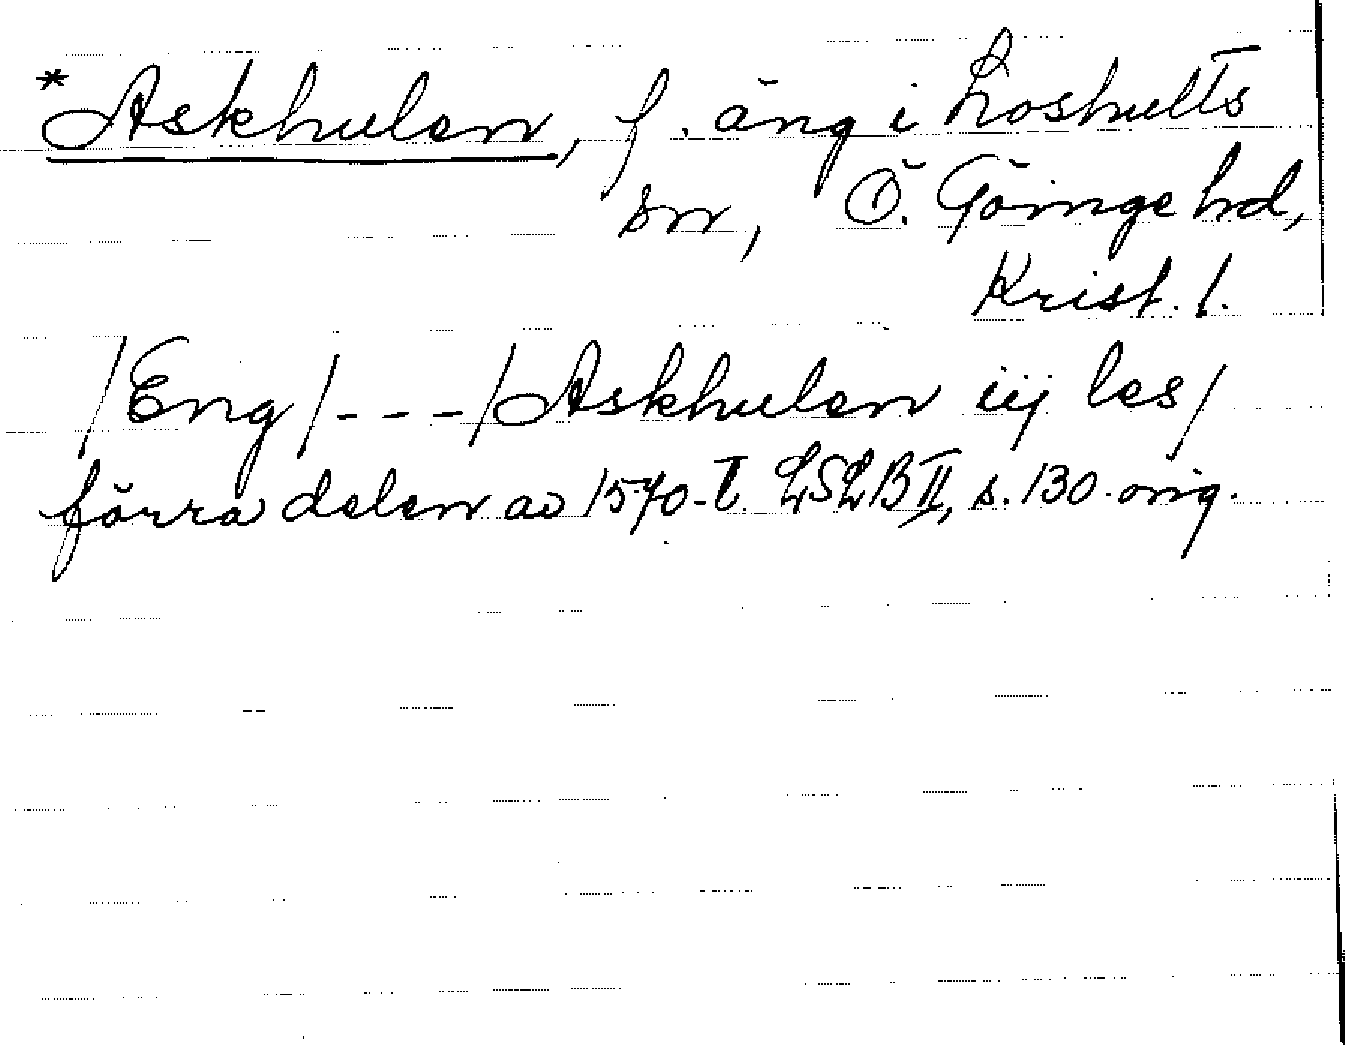 *Askhulen, f. äng i Loshults
sn, Ö. Göinge hd,
Krist. l.
/Eng/---/Askhulen iij les/
förra delen av 1570-t. LSLB II, s. 130. orig.